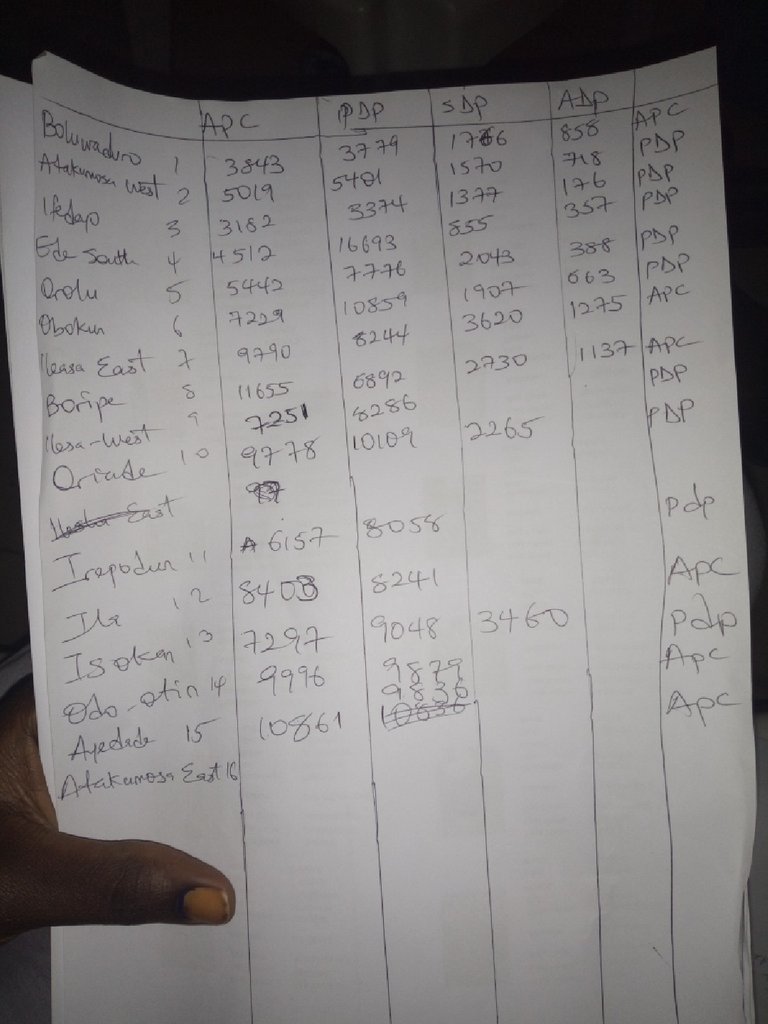 APC PDP SDP ADP
Boluwaduro 1 3843 3779 1766 858 APC
Atakumosa West 2 5019 5401 1570 718 PDP
Ifedayo 3 3182 3374 1377 176 PDP
Ede South 4 4512 16693 855 357 PDP
Orolu 5 5442 7776 2043 388 PDP
Obokun 6 7229 10859 1907 663 PDP
Ilesa East 7 9790 8244 3620 1275 APC
Boripe 8 11655 6892 2730 1137 APC
Ilesa-West 9 7251 8286 PDP
Oriade 10 9778 10109 2265 PDP
East
Irepodun 11 6157 8058 Pdp
Ila 12 8403 8241 APC
Isokan 13 7297 9048 3460 Pdp
Odo-otin 14 9996 9879 APC
Ayedade 15 10861 9836 APC
10836
Atakumosa East 16